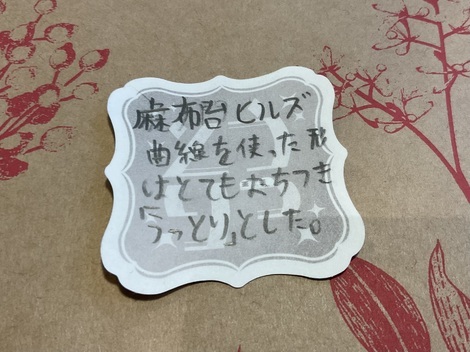 麻布台ヒルズ
曲線を使った形
はとてもおちつき
「うっとり」とした。